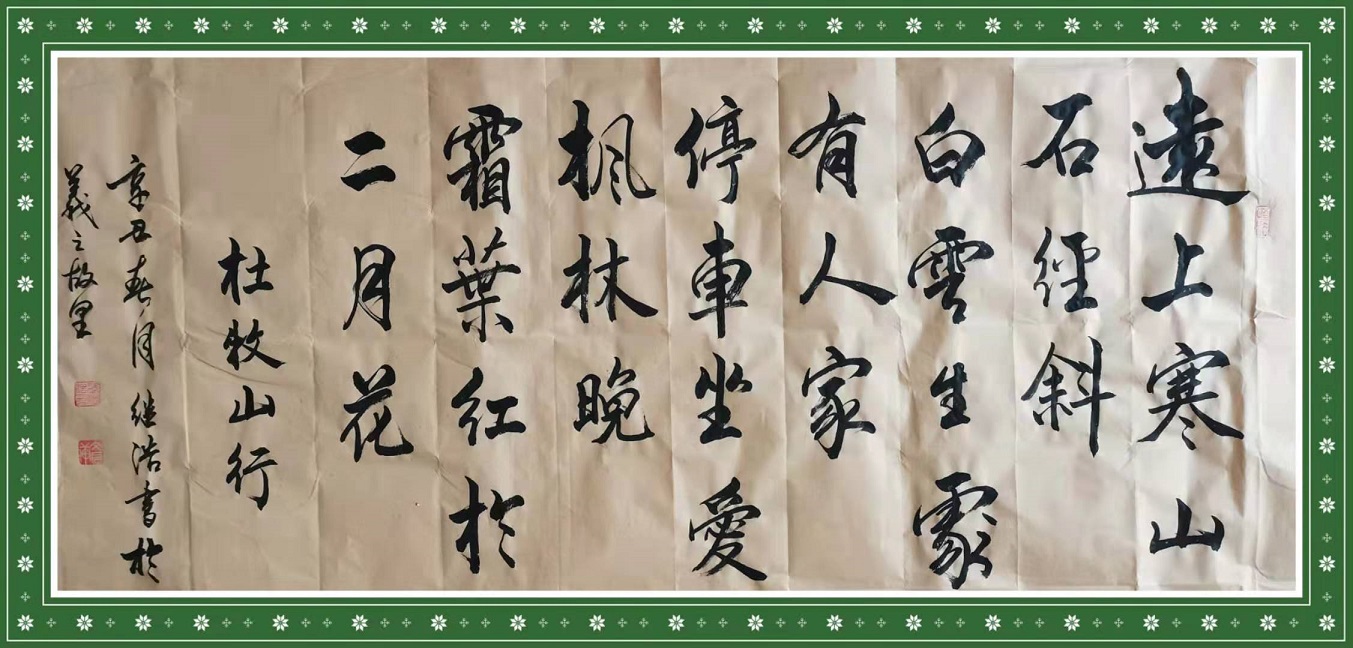 遠上寒山
石徑斜
白雲生處
有人家
停車坐愛
楓林晚
霜葉紅於
二月花
杜牧山行
辛丑春月继浩書於
羲之故里